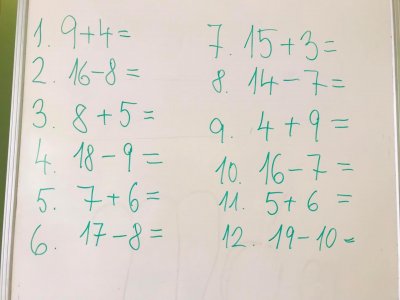 1. 9+4=
2. 16-8=
3. 8+5=
4. 18-9=
5. 7+6=
6. 17-8=
7. 15+3=
8. 14-7=
9. 4+9=
10. 16-7=
11. 5+6=
12. 19-10=